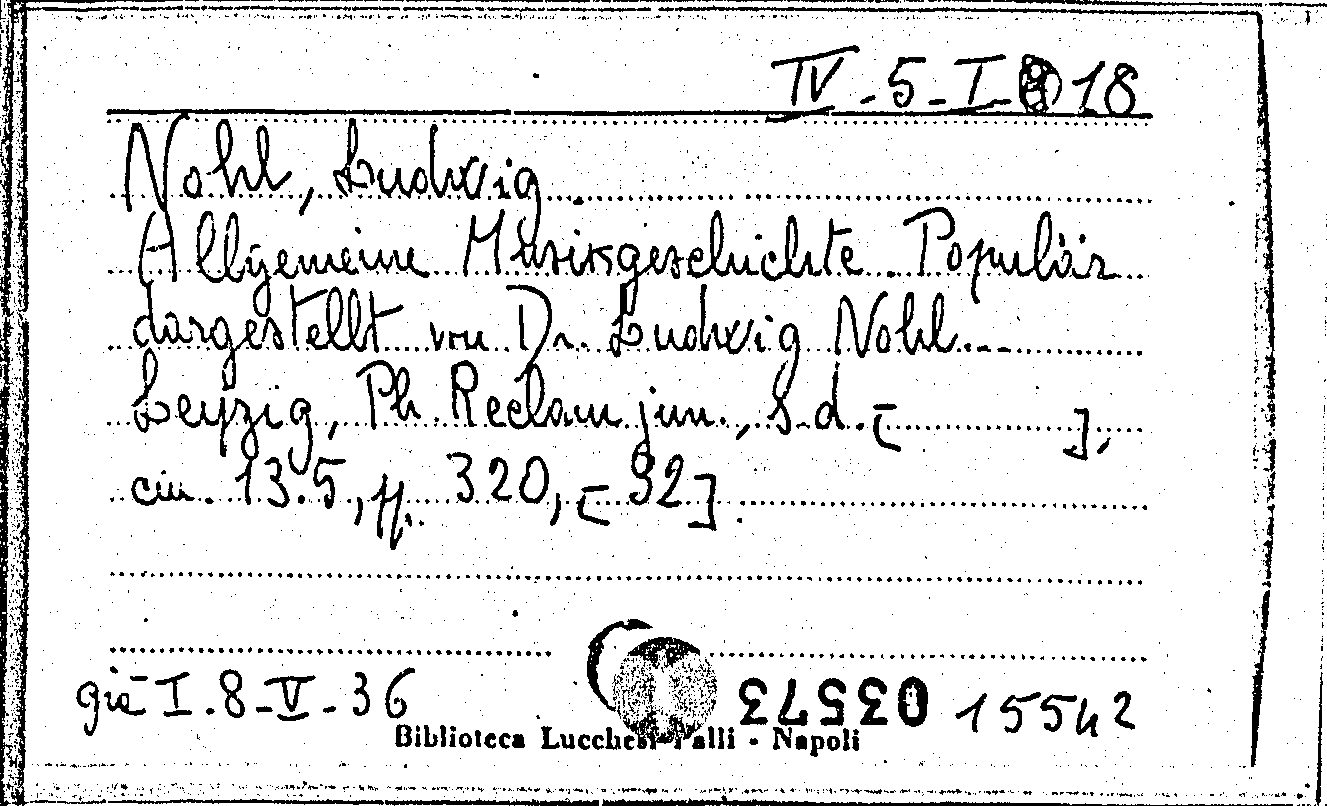 IV-5-I-18
Nohl, Ludwig
Allgemeine Musikgeschichte. Populär
dargestellt von Dr. Ludwig Nohl...
Leipzig, Ph. Reclam jun., s.d. [ ],
cm. 13.5, pp. 320, [32]
già I.8-V-36
035573 15542
Biblioteca Lucchesi-Palli - Napoli